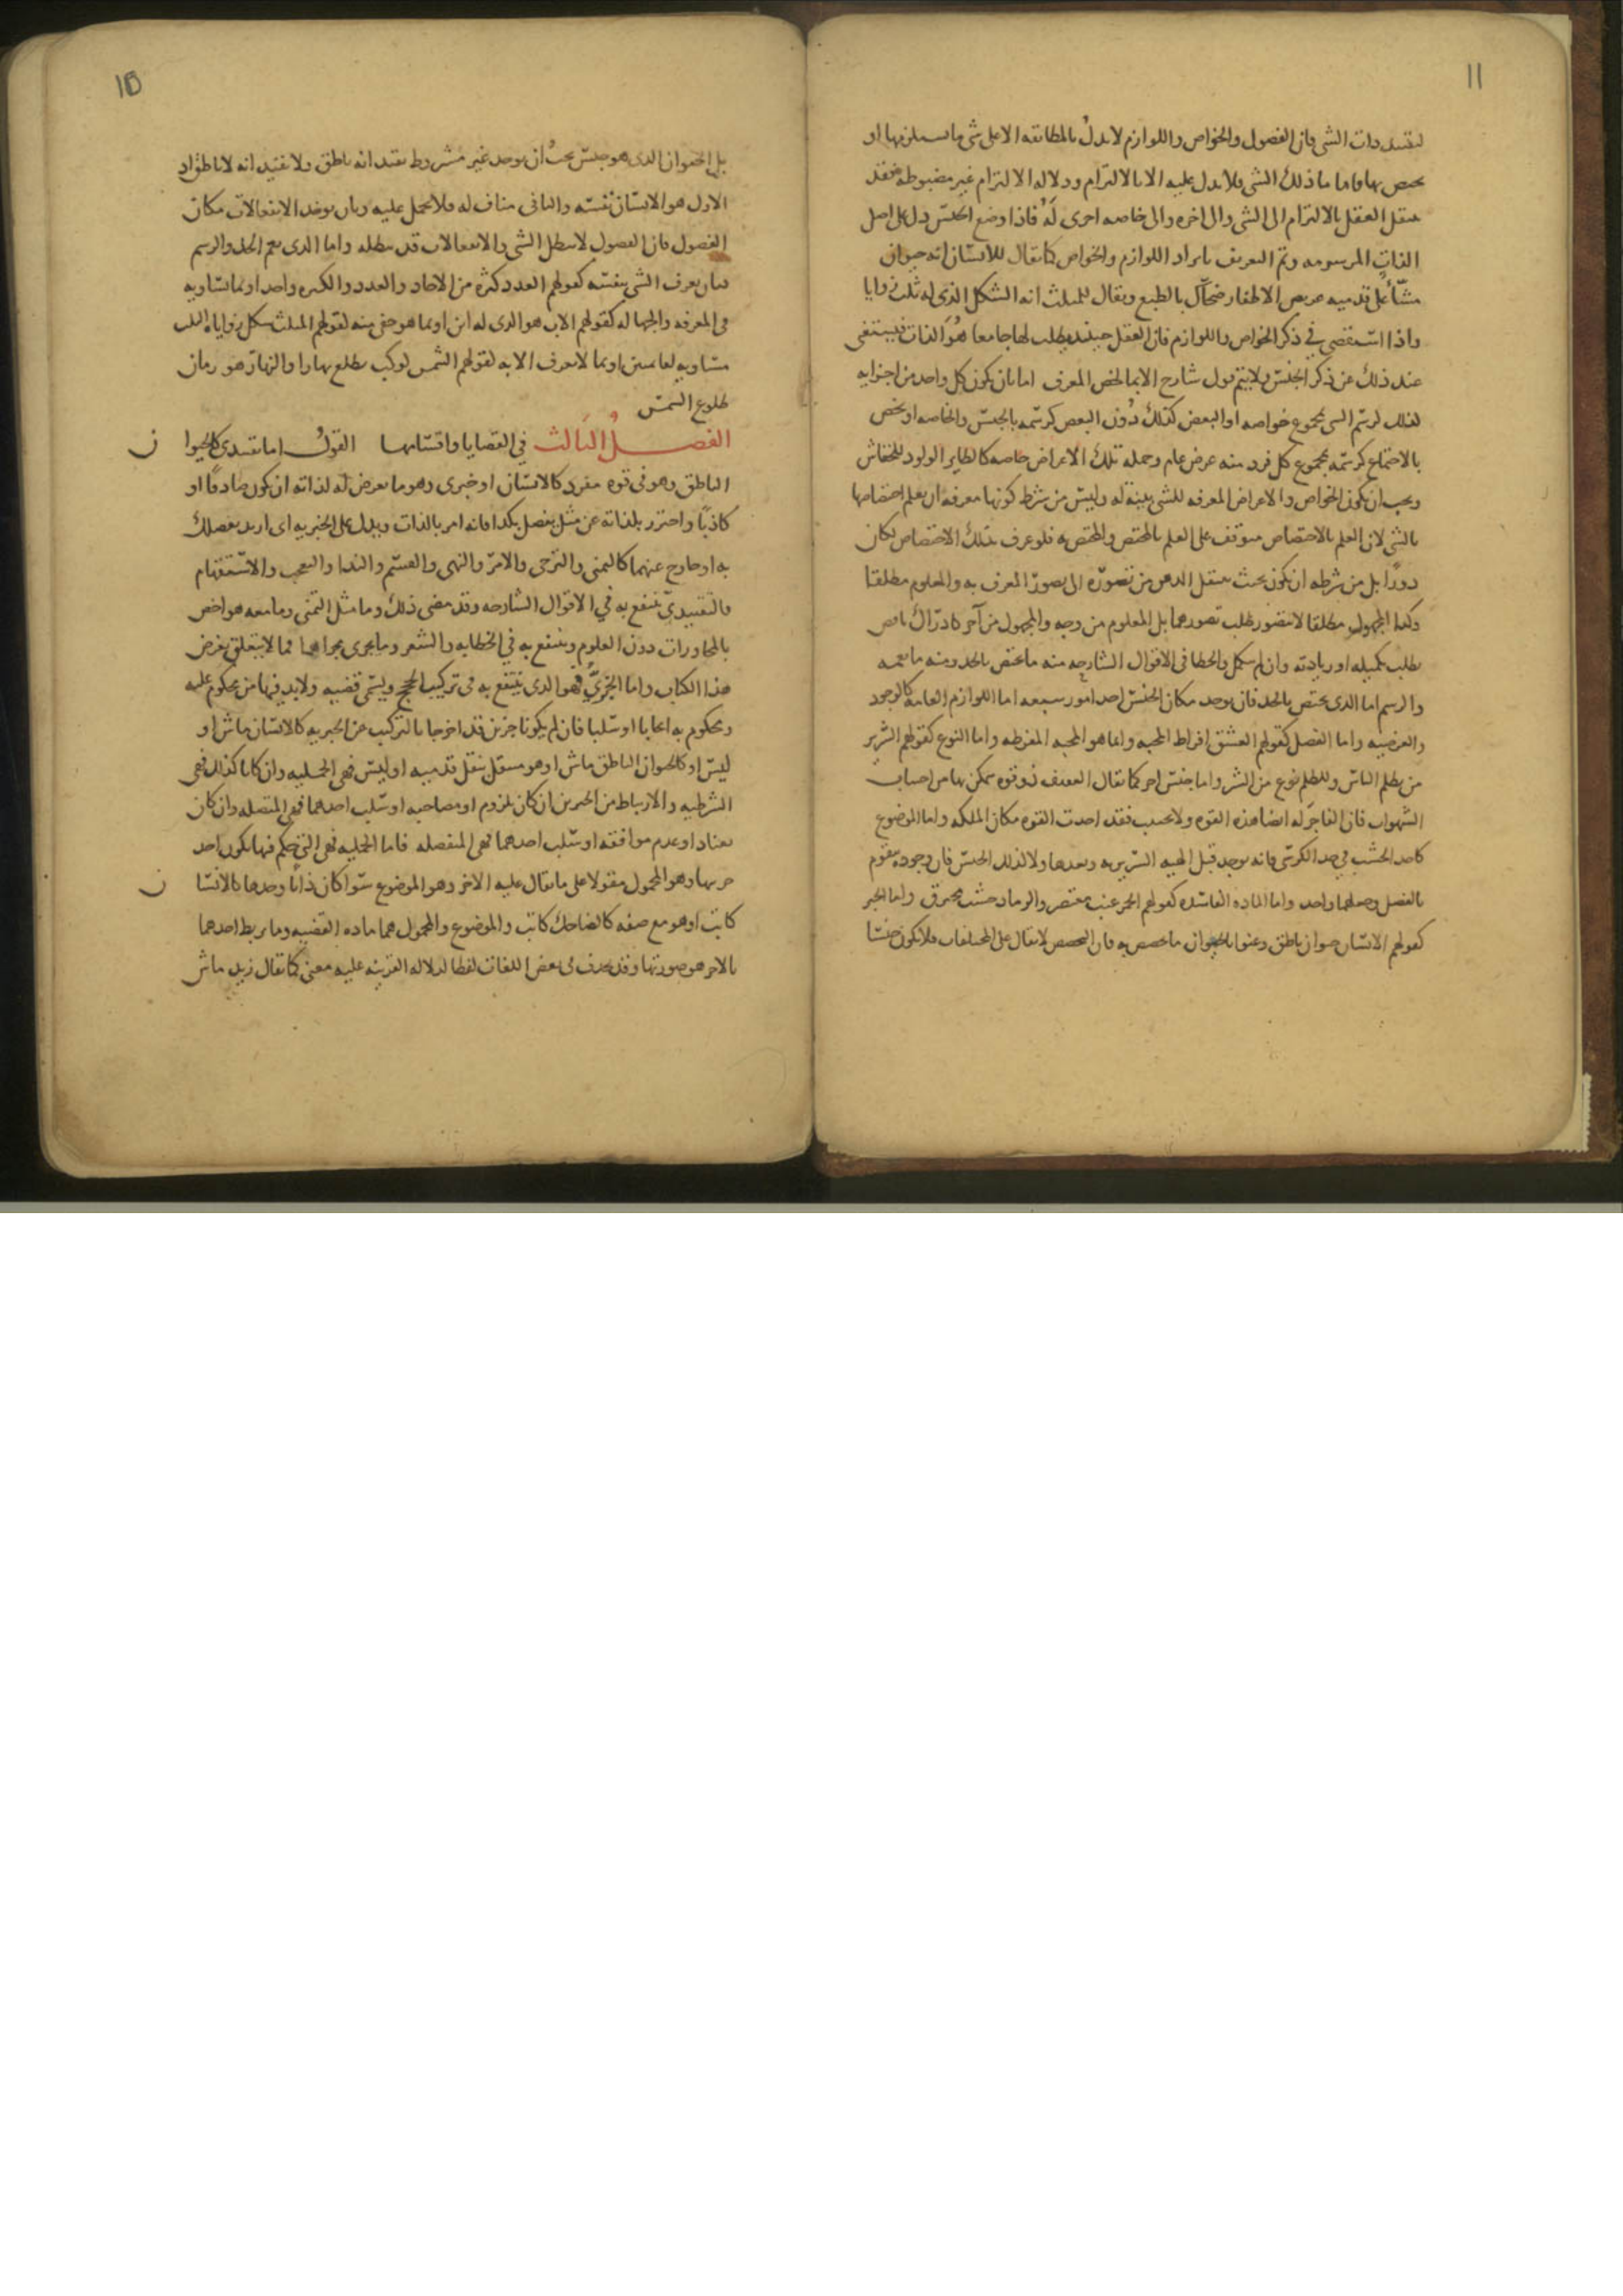 11
لتقييد ذات الشي فان الفصول والخواص واللوازم لا يدل بالمطابقة الا على شي ما يستلزمها او
يختص بها فاما ما ذلك الشي فلا يدل عليه الا بالالتزام ودلاله الالتزام غير مضبوطه فقد
ينتقل العقل بالالتزام الى الشي والى اجزه والى خاصه اخرى له فاذا وضع الجنس دل على اصل
الذات المرسومه وتم التعريف بايراد اللوازم والخواص كما يقال للانسان انه حيوان
مشا على قدميه عريض الاظفار ضحاك بالطبع ويقال للمثلث انه الشكل الذى له ثلث زوايا
واذا استقصي في ذكر الخواص واللوازم فان العقل حينئذ يطلب لها جامعا هو الذات فيستغنى
عند ذلك عن ذكر الجنس ولا يتم قول شارح الا بما يخص المعرف اما بان يكون كل واحد من اجزايه
كذلك كرسم الشى بمجموع خواصه او البعض كذلك دون البعض كرسمه بالجنس والخاصه او يخص
بالاجتماع كرسمه بمجموع كل فرد منه عرض عام وجمله تلك الاعراض خاصه كالطاير الولود للخفاش
ويجب ان يكون الخواص والاعراض المعرفه للشي بينة له وليس من شرط كونها معرفه ان يعلم اختصاصها
بالشي لان العلم بالاختصاص متوقف على العلم بالمختص والمختص به فلو عرف بذلك الاختصاص لكان
دورا بل من شرطه ان يكون بحيث ينتقل الذهن من تصوره الى تصور المعرف به والمعلوم مطلقا
وكذا المجهول مطلقا لا يتصور طلب تصورهما بل المعلوم من وجه والمجهول من آخر كادراك ناقص
يطلب تكميله او زيادته وان لم يكمل والخطا في الاقوال الشارحه منه ما يختص بالحد ومنه ما يعمه
والرسم اما الذى يختص بالحد فان يوجد مكان الجنس احد امور سبعه اما اللوازم العامه كالوجود
والعرضيه واما الفصل كقولهم العشق افراط المحبه وانما هو المحبه المفرطه واما النوع كقولهم الشرير
من يظلم الناس والظلم نوع من الشر واما جنس اخر كما يقال العفيف ذو قوه يتمكن بها من اجتناب
الشهوات فان الفاجر له ايضا هذه القوه ولا يجتنب فقد اخذت القوه مكان الملكه واما الموضوع
كاخذ الخشب في حد الكرسي فانه يوجد قبل الهيه السريريه وبعدها ولا كذلك الجنس فان وجوده يتقوم
بالفصل وجعلهما واحد واما الماده الفاسده كقولهم الخمر عنب معتصر والرماد خشب محترق واما الجزؤ
كقولهم الانسان حيوان ناطق وعنوا بالحيوان ما تخصص به فان المخصص لا يقال على المختلفات فلا يكون جنسا
10
بل الحيوان الذى هو جنس يجب ان يوجد غير مشروط بقيد انه ناطق ولا بقيد انه لا ناطق اذ
الاول هو الانسان نفسه والثانى مناف له فلا يحمل عليه وبان يوخذ الانفعالات مكان
الفصول فان الفصول لا تبطل الشى والانفعالات قد تبطله واما الذى يعم الحد والرسم
فبان يعرف الشى بنفسه كقولهم العدد كثرة من الاحاد والعدد والكثره واحد او بما يساويه
فى المعرفه والجهاله كقولهم الاب هو الذى له ابن او بما هو اخفى منه كقولهم المثلث شكل زواياه الثلث
مساويه لقايمتين او بما لا يعرف الا به كقولهم الشمس كوكب يطلع نهارا والنهار هو زمان
طلوع الشمس
الفصل الثالث في القضايا واقسامها القول اما تقييدى كالحيوا ن
الناطق وهو فى قوه مفرد كالانسان او خبرى وهو ما يعرض له لذاته ان يكون صادقا او
كاذبا واحترز بلذاته عن مثل تفضل بكذا فانه امر بالذات ويدل على الخبريه اى اريد تفضلك
به او خارج عنهما كالتمنى والترجى والامر والنهى والقسم والندا والتعجب والاستفهام
فالتقييدى ينتفع به في الاقوال الشارحه وقد مضى ذلك وما مثل التمنى وما معه هو اخص
بالمحاورات دون العلوم وينتفع به في الخطابه والشعر وما يجرى مجراهما مما لا يتعلق بغرض
هذا الكتاب واما الخبرى فهو الذى ينتفع به فى تركيب الحجج ويسمى قضيه ولا بد فيها من محكوم عليه
ومحكوم به ايجابا او سلبا فان لم يكونا خبرين قد اخرجا بالتركيب عن الخبريه كالانسان ماش او
ليس او كالحيوان الناطق ماش او هو منتقل بنقل قدميه او ليس فهى الحمليه وان كانا كذلك فهى
الشرطيه والارتباط من الخبرين ان كان بلزوم او مصاحبه او سلب احدهما فهى المتصله وان كان
بعناد او عدم موافقه او سلب احدهما فهى المنفصله فاما الحمليه فهى التى يحكم فيها بكون احد
جزيها وهو المحمول مقولا على ما يقال عليه الاخر وهو الموضوع سوا كان ذاتا وحدها كالانسا ن
كاتب او هو مع صفه كالضاحك كاتب والموضوع والمحمول هما ماده القضيه وما يربط احدهما
بالاخر هو صورتها وقد يحذف فى بعض اللغات لفظا لدلاله القرينه عليه معنى كما يقال زيد ماش